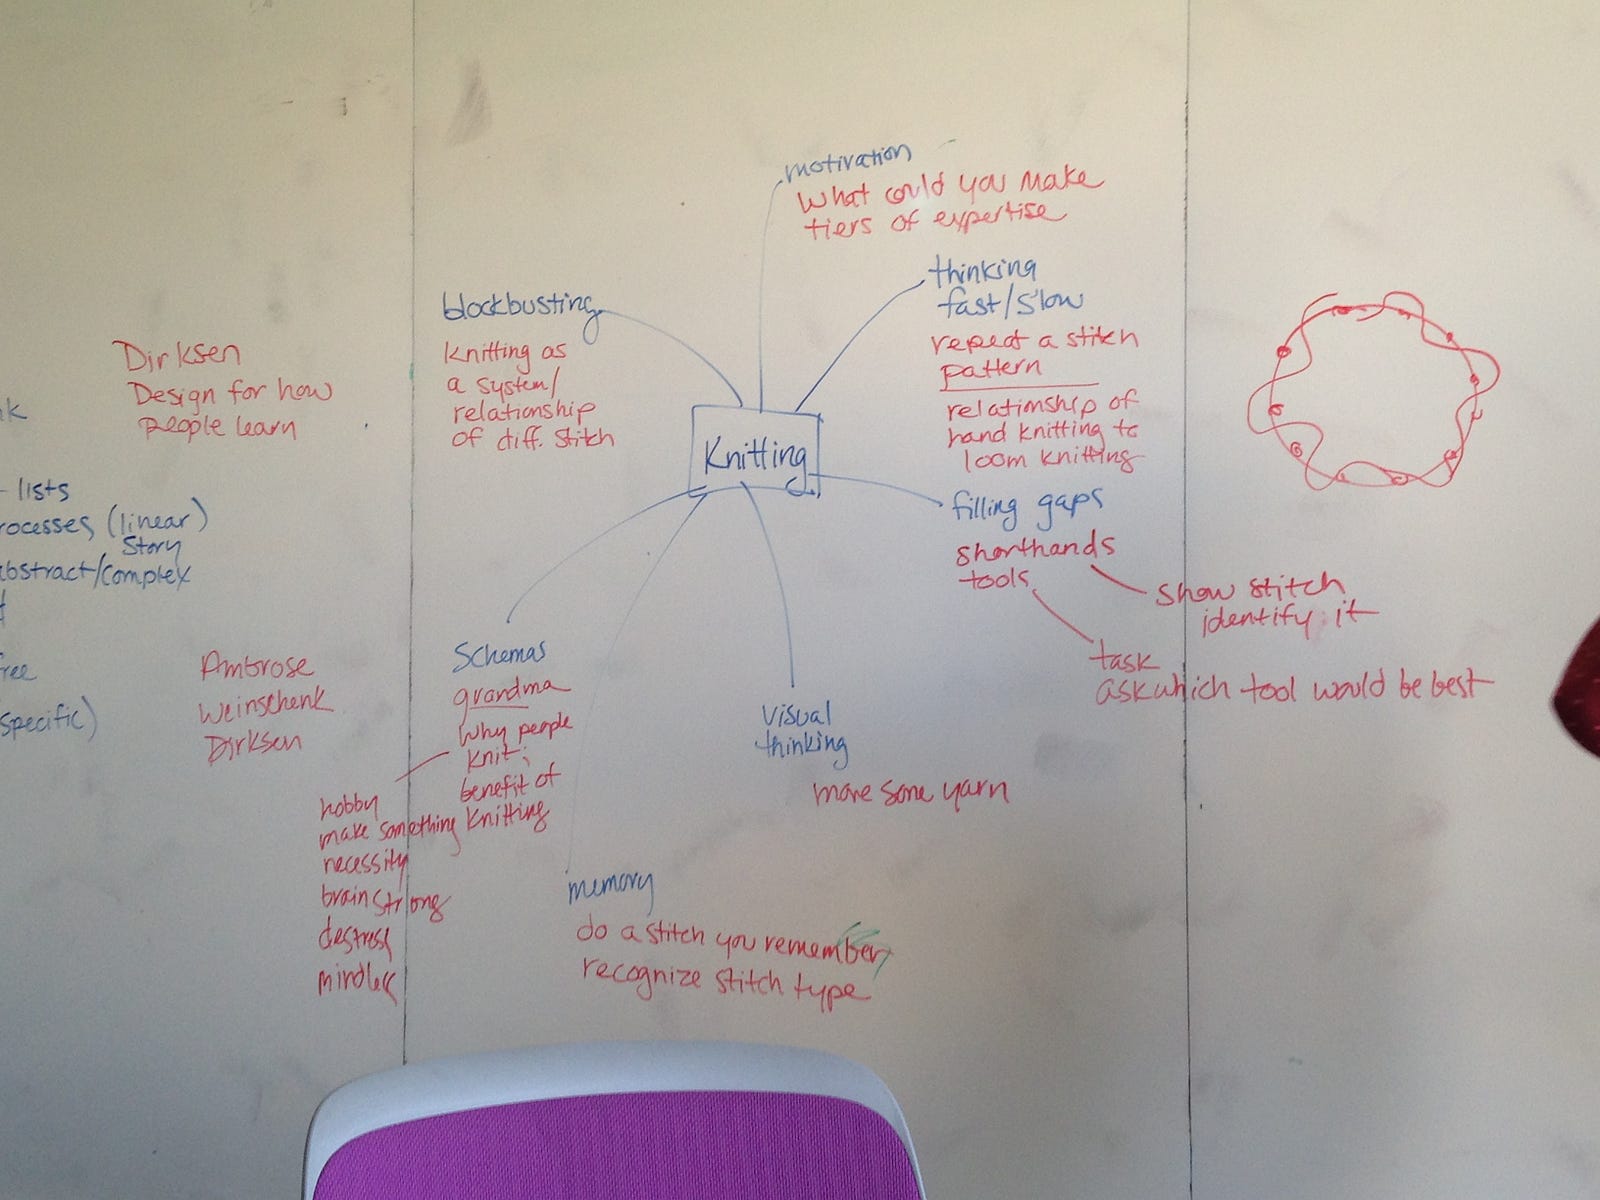 motivation
What could you make
tiers of expertise
thinking
fast/slow
repeat a stitch
pattern
relationship of
hand knitting to
loom knitting
blockbusting
Knitting as
a system/
relationship
of diff. stitch
Knitting
filling gaps
shorthands
tools
show stitch
identify it
task
ask which tool would be best
Schemas
grandma
Why people
knit;
benefit of
knitting
hobby
make something
necessity
brain strong
destress
visual
thinking
move some yarn
memory
do a stitch you remember
recognize stitch type
Dirksen
Design for how
people learn
- lists
rocesses (linear)
story
abstract/complex
free
specific)
Ambrose
Weinschenk
Dirksen